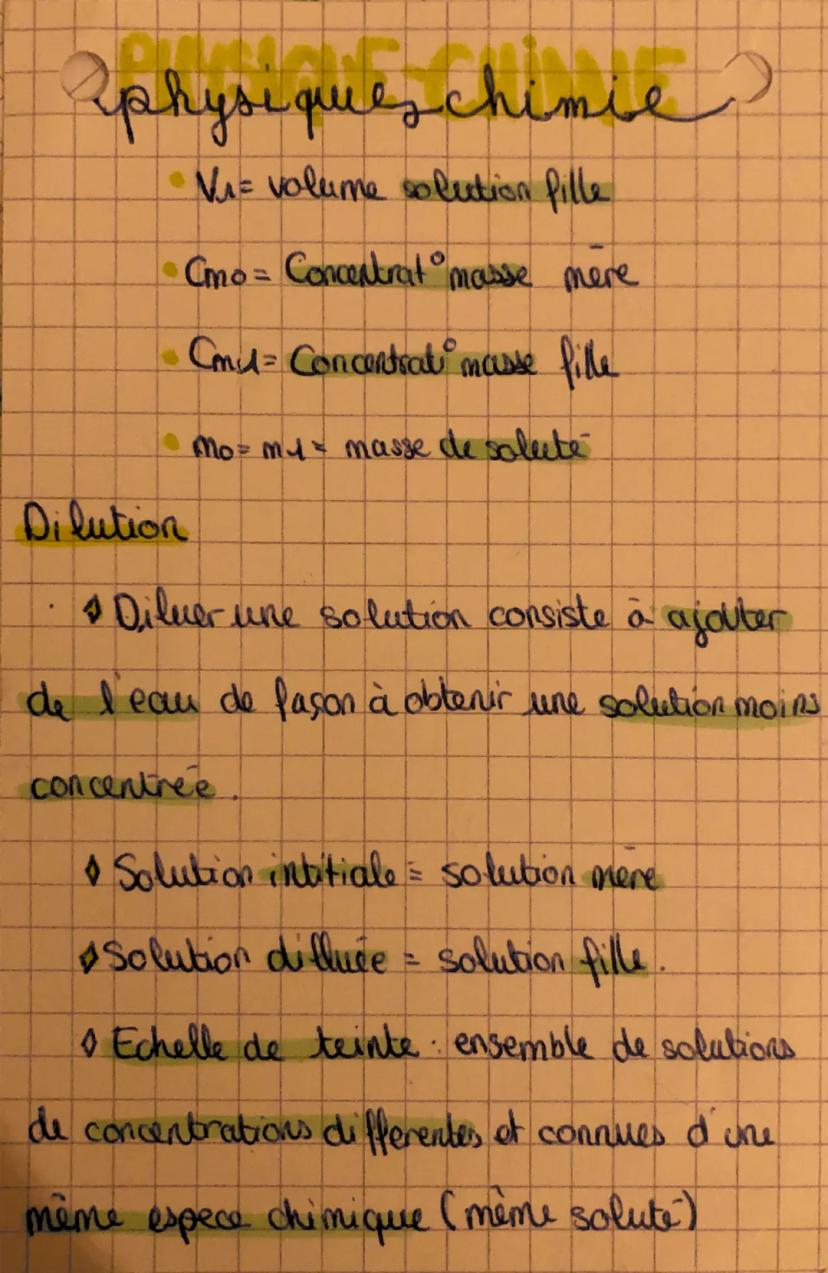 PHYSIQUE-CHIMIE
physique chimie
V1 = volume solution fille
Cm0 = Concentrat° masse mère
Cm1 = Concentrati° masse fille
m0 = m1 = masse de soluté
Dilution
Diluer une solution consiste à ajouter
de l'eau de façon à obtenir une solution moins
concentrée.
Solution intitiale = solution mère
Solution dilluée = solution fille.
Echelle de teinte : ensemble de solutions
de concentrations differentes et connues d'une
même espece chimique (même soluté)